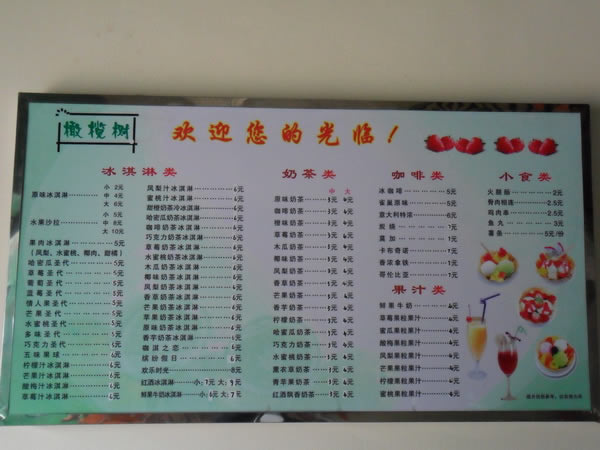 橄榄树
欢迎您的光临！
冰淇淋类
原味冰淇淋
小 2元
中 4元
大 6元
水果沙拉
小 5元
中 8元
大 10元
果肉冰淇淋 5元
(凤梨、水蜜桃、椰肉、甜橙)
哈密瓜圣代 5元
草莓圣代 5元
葡萄圣代 5元
蓝莓圣代 5元
情人果圣代 5元
芒果圣代 5元
水蜜桃圣代 5元
多味圣代 5元
巧克力圣代 5元
五味果球 6元
柠檬汁冰淇淋 6元
芒果汁冰淇淋 6元
酸梅汁冰淇淋 6元
草莓汁冰淇淋 6元
凤梨汁冰淇淋 6元
蜜桃汁冰淇淋 6元
甜橙奶茶冰淇淋 6元
哈密瓜奶茶冰淇淋 6元
咖啡奶茶冰淇淋 6元
巧克力奶茶冰淇淋 6元
草莓奶茶冰淇淋 6元
水蜜桃奶茶冰淇淋 6元
木瓜奶茶冰淇淋 6元
椰味奶茶冰淇淋 6元
凤梨奶茶冰淇淋 6元
香草奶茶冰淇淋 6元
芒果奶茶冰淇淋 6元
苹果奶茶冰淇淋 6元
原味奶茶冰淇淋 6元
香芋奶茶冰淇淋 6元
咖淇之恋 6元
缤纷假日 6元
欢乐时光 8元
红酒冰淇淋 小:7元 大:9元
鲜果牛奶冰淇淋 小:6元 大:7元
奶茶类
中 大
原味奶茶 3元 4元
咖啡奶茶 3元 4元
橙味奶茶 3元 4元
草莓奶茶 3元 4元
木瓜奶茶 3元 4元
椰味奶茶 3元 4元
凤梨奶茶 3元 4元
香草奶茶 3元 4元
芒果奶茶 3元 4元
苹果奶茶 3元 4元
香芋奶茶 3元 4元
柠檬奶茶 3元 4元
哈蜜瓜奶茶 3元 4元
巧克力奶茶 3元 4元
水蜜桃奶茶 3元 4元
薰衣草奶茶 3元 4元
青苹果奶茶 3元 4元
红酒飘香奶茶 3元 4元
咖啡类
冰咖啡 5元
雀巢原味 5元
意大利特浓 6元
炭烧 7元
摩加 7元
卡布奇诺 7元
香浓拿铁 7元
哥伦比亚 7元
果汁类
鲜果牛奶 4元
草莓果粒果汁 4元
蜜瓜果粒果汁 4元
酸梅果粒果汁 4元
凤梨果粒果汁 4元
芒果果粒果汁 4元
柠檬果粒果汁 4元
蜜桃果粒果汁 4元
小食类
火腿肠 2元
骨肉相连 2.5元
鸡肉串 2.5元
鱼丸 3元
薯条 5元/份